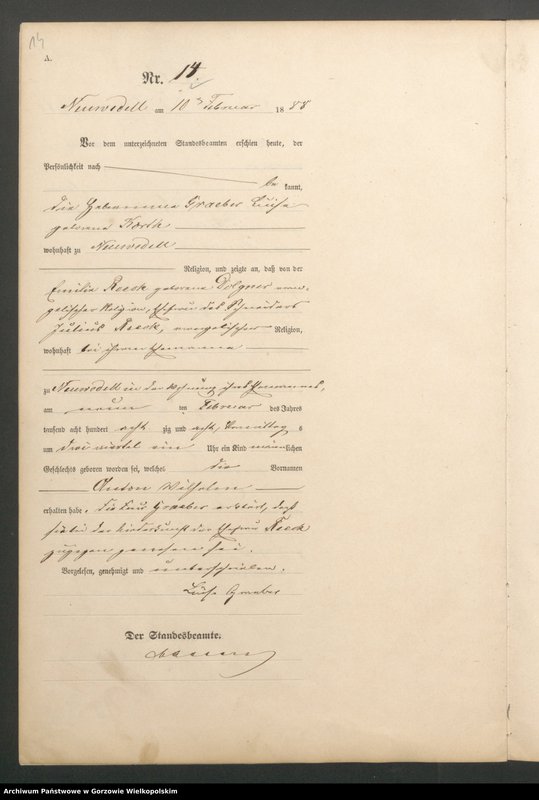 14
A.
Nr. 14
Neuwedell am 10 ten Februar 1888
Vor dem unterzeichneten Standesbeamten erschien heute, der
Persönlichkeit nach
be kannt,
die Hebamme Graeber Luise
geborene Korth
wohnhaft zu Neuwedell
Religion, und zeigte an, daß von der
Emilie Reeck geborene Dolgner evan-
gelischer Religion, Ehefrau des Schneiders
Julius Reeck, evangelischer Religion,
wohnhaft bei ihrem Ehemanne
zu Neuwedell in der Wohnung ihres Ehemannes,
am neun ten Februar des Jahres
tausend acht hundert acht zig und acht, Vormittag s
um drei viertel ein Uhr ein Kind männlichen
Geschlechts geboren worden sei, welches die Vornamen
Anton Wilhelm
erhalten habe. Die Graeber erklärt, daß
sie bei der Niederkunft der Ehefrau Reeck
zugegen gewesen sei.
Vorgelesen, genehmigt und unterschrieben.
Luise Graeber
Der Standesbeamte.
Archiwum Państwowe w Gorzowie Wielkopolskim